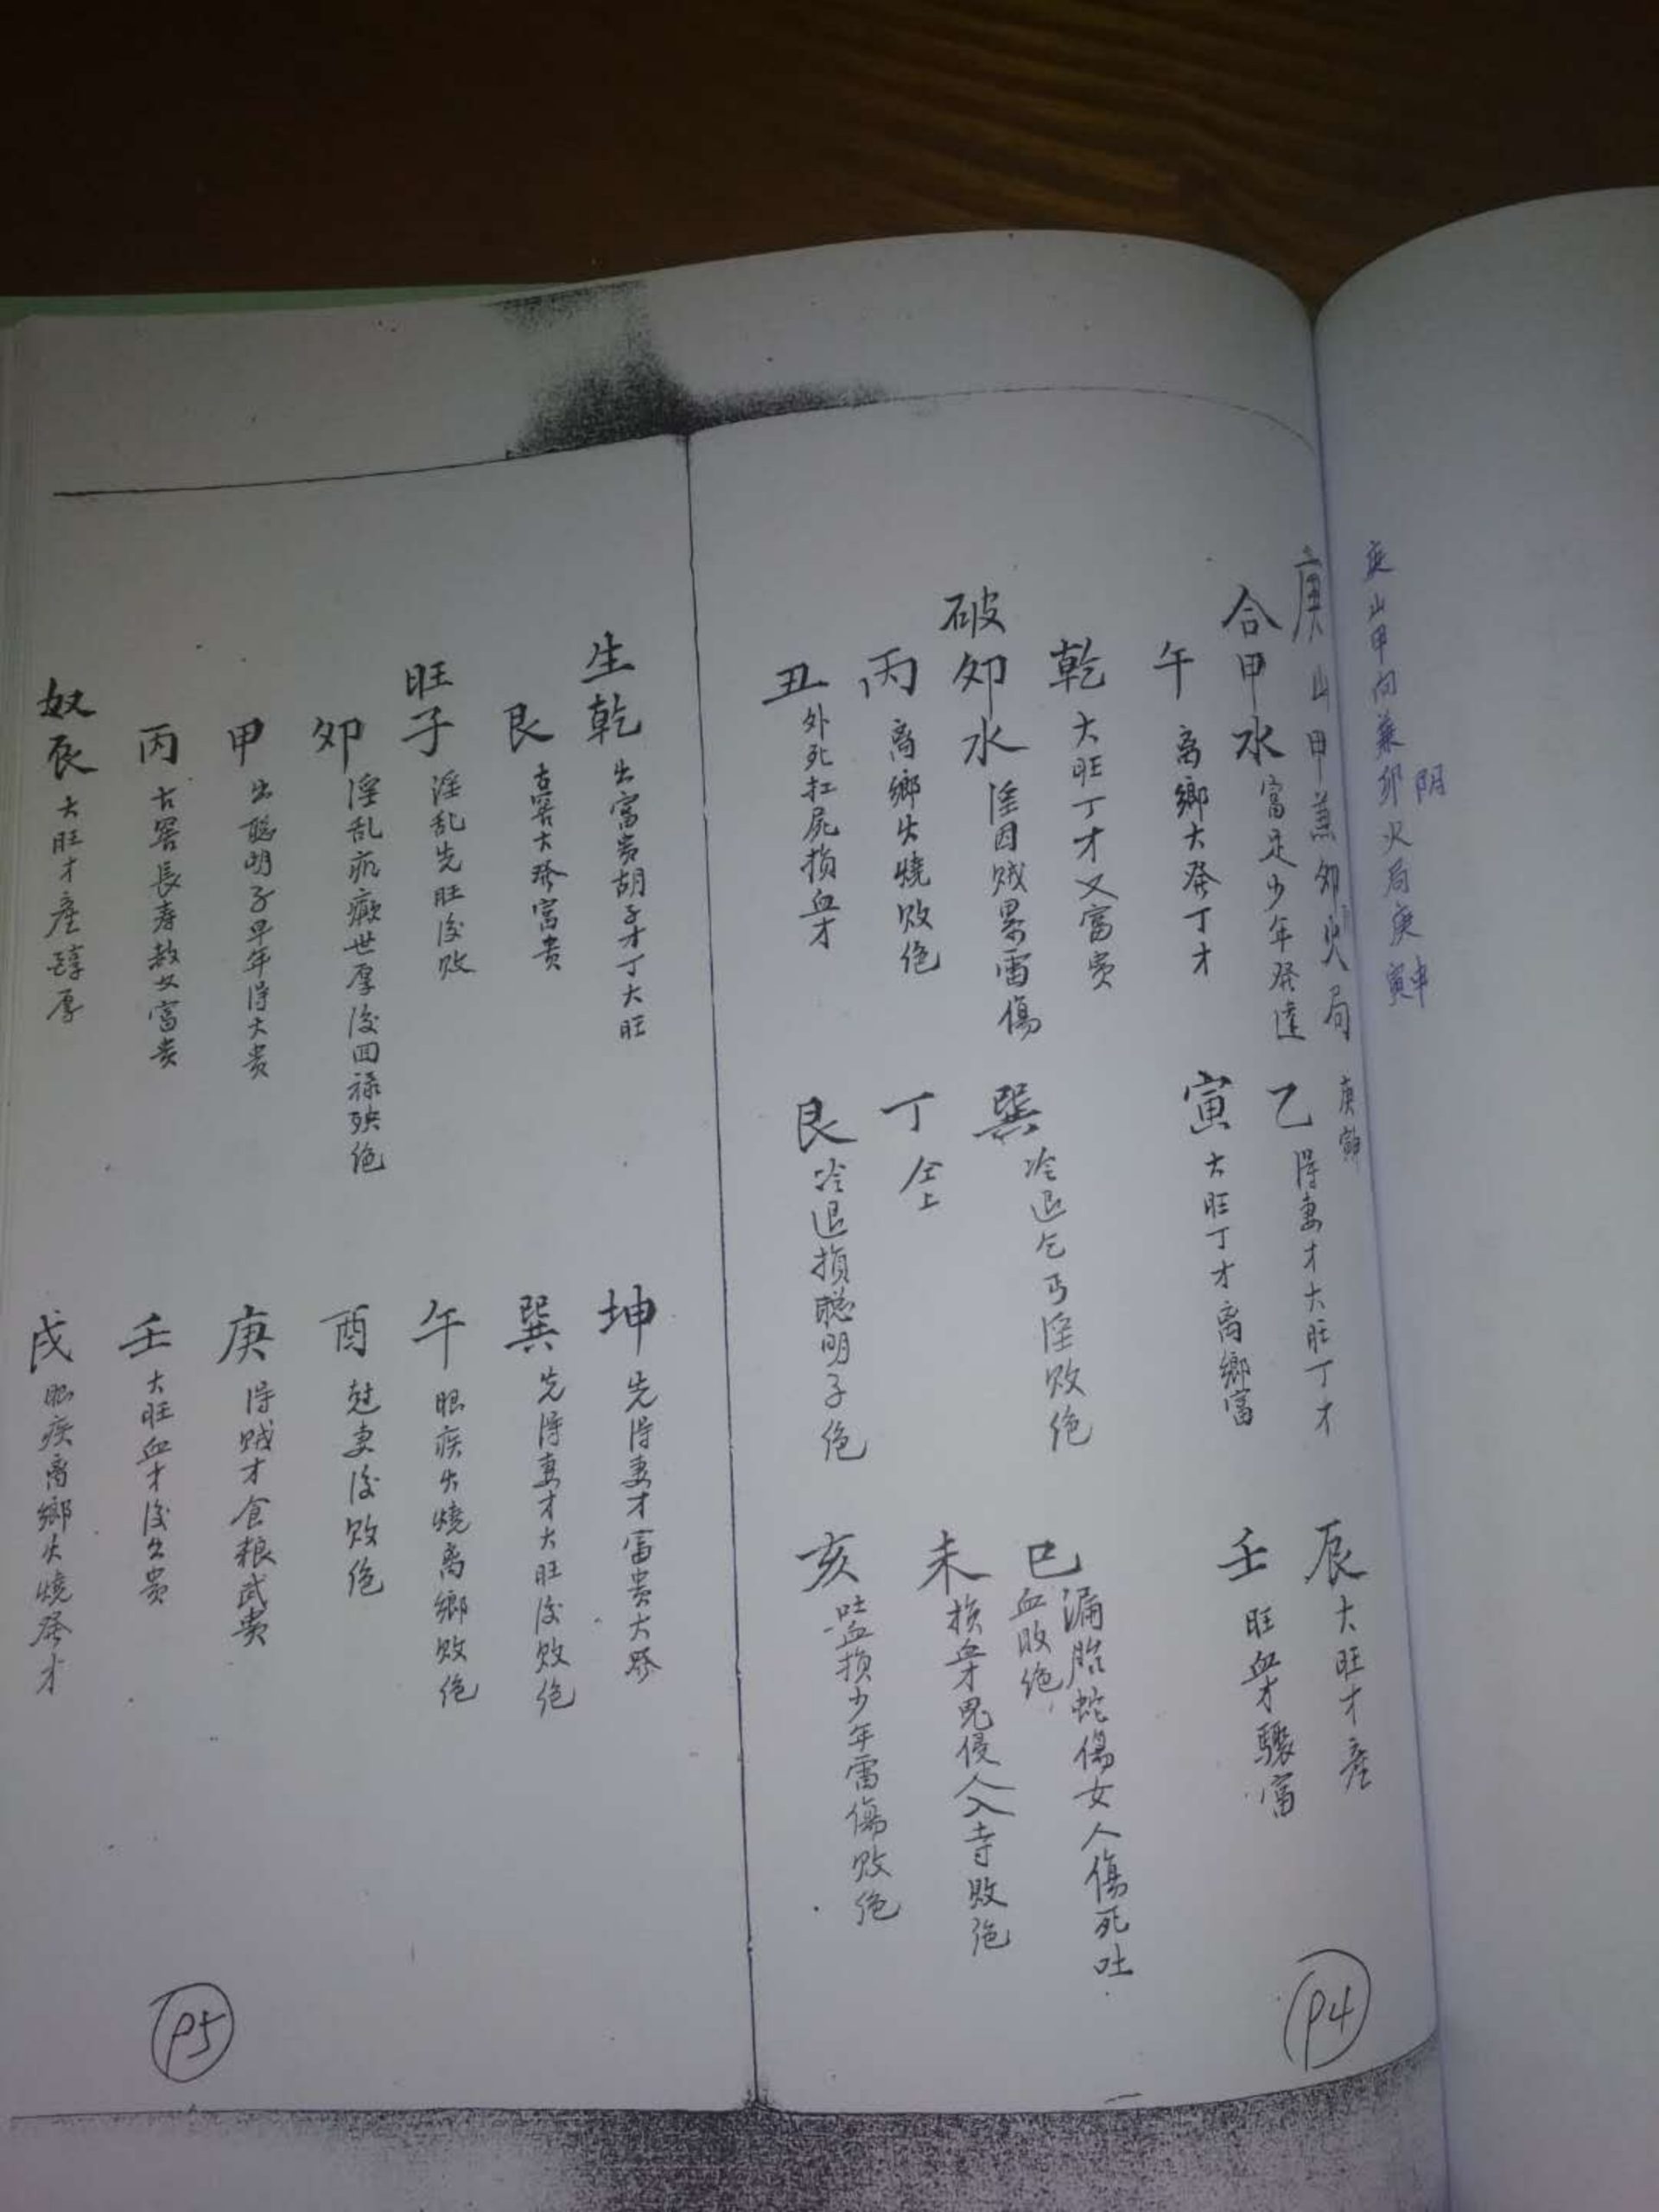 庚山甲向兼卯火局庚寅申
阴
庚山甲兼卯火局 庚寅
合甲水 富足少年發達
乙 得妻才大旺丁才
辰 大旺才產
午 离鄉大發丁才
寅 大旺丁才离鄉富
壬 旺血才驟富
乾 大旺丁才又富貴
破卯水 淫因賊累雷傷
巽 冷退乞丐淫敗绝
巳 漏胎蛇傷女人傷死吐
血敗绝
丙 离鄉火燒敗绝
丁 仝上
未 损血才鬼侵人入寺敗绝
丑 外死扛屍损血才
艮 冷退損聪明子绝
亥 吐血损少年雷傷敗绝
P4
生乾 出富贵胡子才丁大旺
坤 先得妻才富贵大發
艮 古窖大發富貴
巽 先得妻才大旺後敗绝
旺子 淫乱先旺後败
午 眼疾火燒离鄉敗绝
卯 淫乱疯癫世厚後回禄殃绝
酉 尅妻後敗绝
甲 出聪明子早年得大贵
庚 得賊才食粮武贵
丙 古窖長寿教女富贵
壬 大旺血才後出贵
奴辰 大旺才產醇厚
戌 眼疾离鄉火燒發才
P5